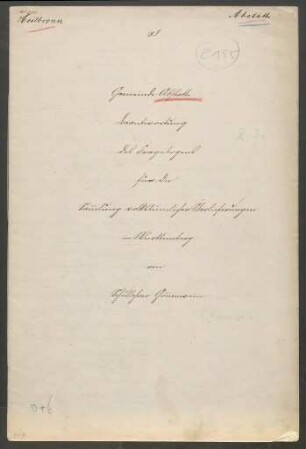 Heilbronn
Abstatt
Gemeinde Abstatt
Beantwortung
des Fragebogens
für die
Sammlung volkstümlicher Überlieferungen
in Württemberg
von
Schullehrer